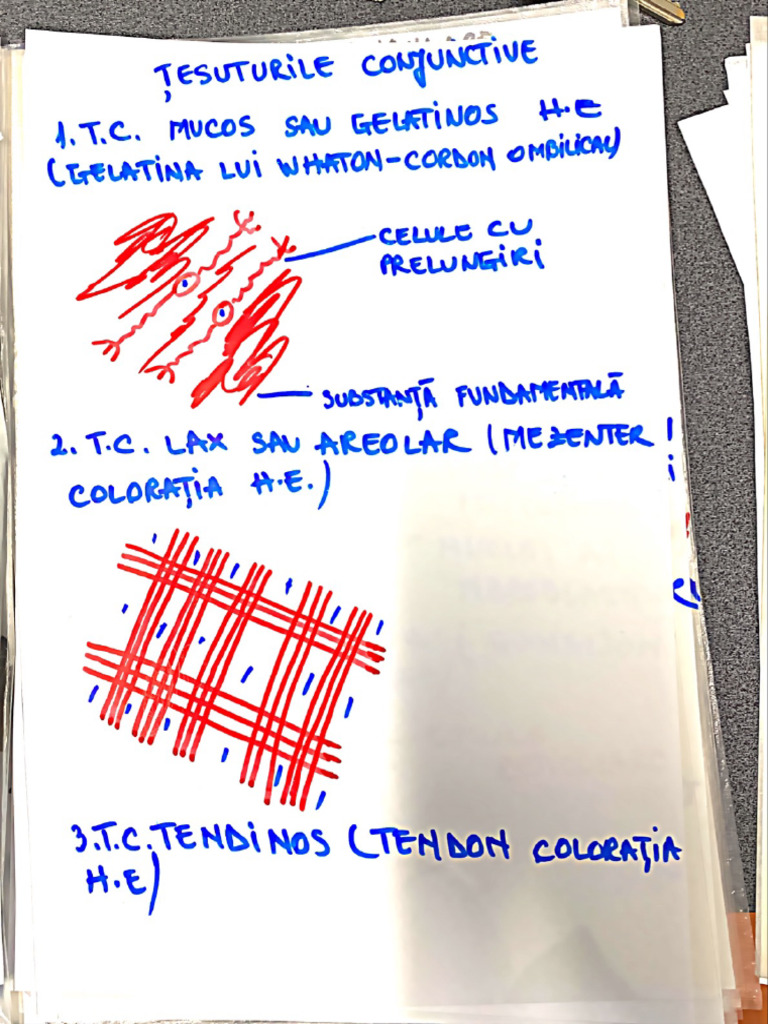 ȚESUTURILE CONJUNCTIVE
1. T.C. MUCOS SAU GELATINOS H.E
(GELATINA LUI WHATON-CORDON OMBILICAL)
CELULE CU
PRELUNGIRI
SUBSTANȚĂ FUNDAMENTALĂ
2. T.C. LAX SAU AREOLAR (MEZENTER
COLORAȚIA H.E.)
3. T.C. TENDINOS (TENDON COLORAȚIA
H.E)